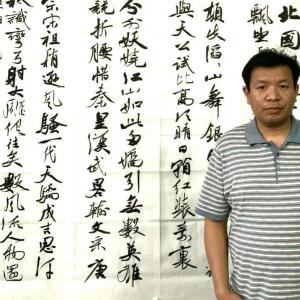 北國
飄
頓失滔山舞銀
與天公試比高須晴日看紅裝素裹
分外妖嬈江山如此多嬌引無數英雄
競折腰惜秦皇漢武略輸文采唐
宗宋祖稍遜風騷一代天驕成吉思汗
祇識彎弓射大雕俱往矣數風流人物還